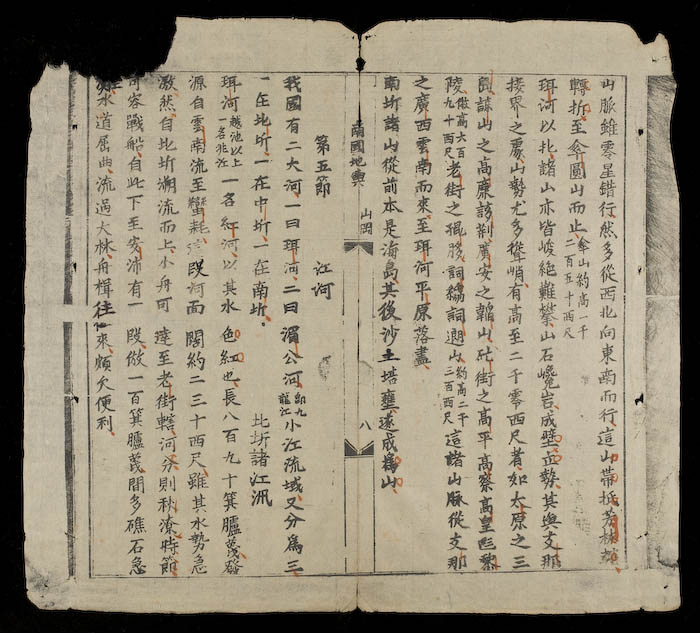 山脈雖零星錯行然多從西北向東南而行這山帶抵芳林
轉折至傘圓山而止傘山約高一千二百五十西尺
珥河以北諸山亦皆峻絕難攀山石巉岩成壁立勢其與支那
接界之處山勢尤多聳峭有高至二千零西尺者如太原之三
山之高廉諒廣安之山北街之高平高察高皇
陵做高六百九十西尺老街之山約高二千三百西尺這諸山脈從支那
之廣西雲南而來至珥河平原落盡
南圻諸山從前本是海島其後沙土培壅遂成爲山
南國地輿 山岡 八
第五節 江河
我國有二大河一曰珥河二曰湄公河即九龍江小江流域又分爲三
一在北圻一在中圻一在南圻 北圻諸江汎
珥河越池以上一名兆江一名紅河以其水色紅也長八百九十箕臚蔑發
源自雲南流至蠻耗這段河面闊約二三十西尺雖其水勢急
激然自北圻溯流而上小舟可達至老街轄河分則秋潦時節
可容戰船自此下至安沛有一段做一百箕臚蔑間多礁石急
水道屈曲流過大林舟楫往來頗欠便利